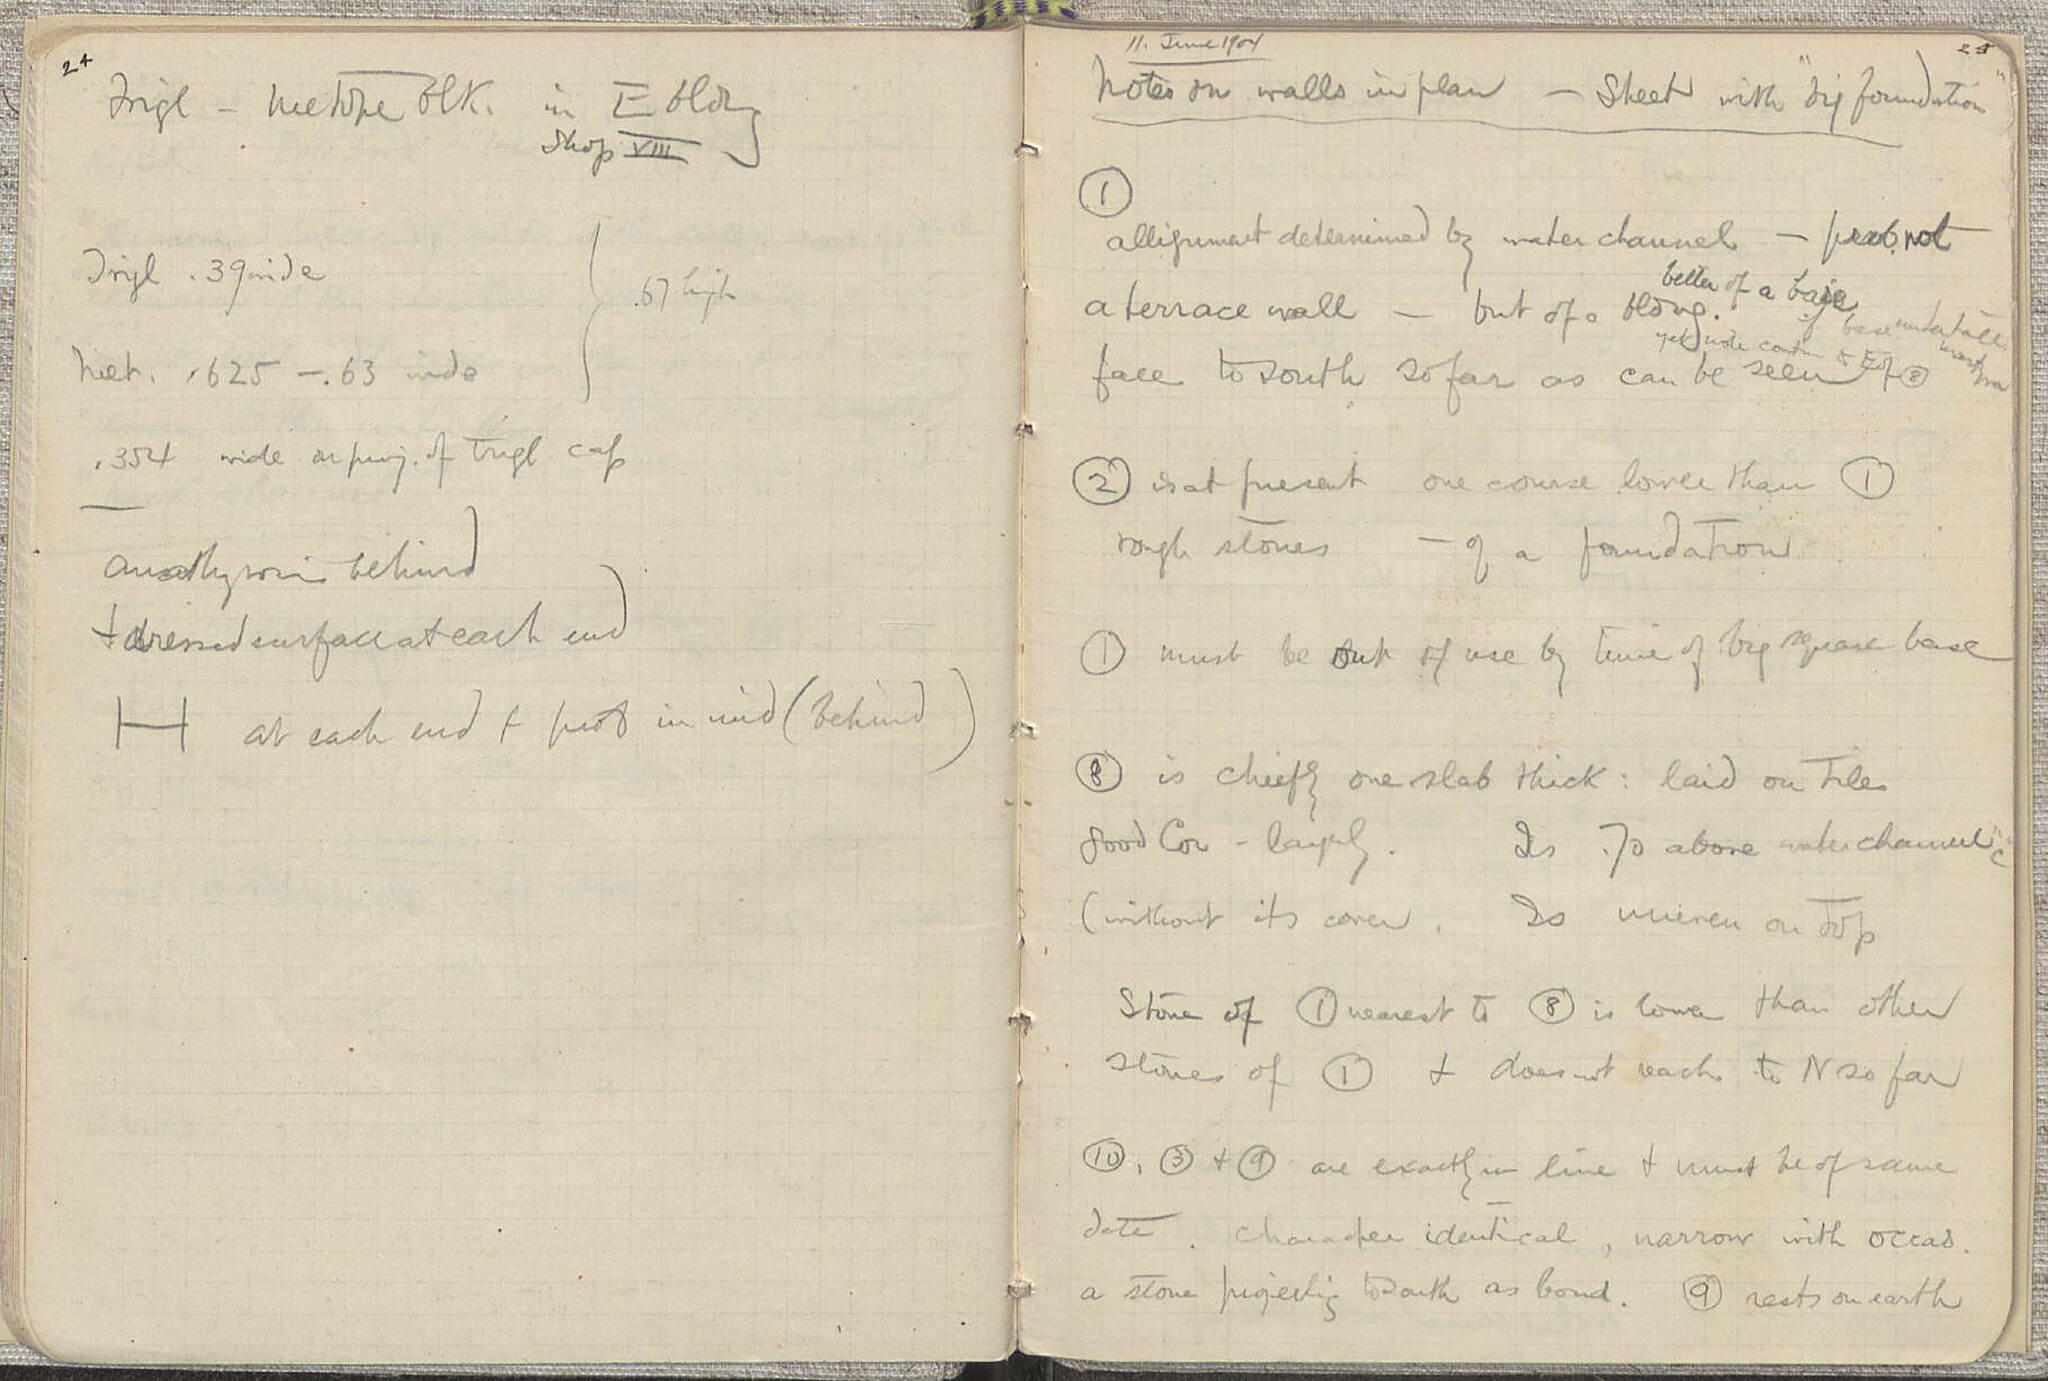 24
Trigl – Metope blk. in E bldg
Shop VIII
Trigl .39 wide
.67 high
Met. .625 – .63 wide
.354 wide on proj. of Trigl cap
anathyrosis behind
+ dressed surface at each end
H at each end + in mid (behind)
25
11. June 1904
Notes on walls in plan – Sheet with "big foundation"
①
allignment determined by water channel – prob. not
better of a base
a terrace wall – but of a bldg.
face to south so far as can be seen
yet note contin to E of ⑧
② is at present one course lower than ①
rough stones – of a foundation
① must be out of use by time of big square base
⑧ is chiefly one slab thick : laid on tiles
good Cor – largely. Is .70 above water channel "C"
(without its cover. Is uneven on top
Stone of ① nearest to ⑧ is lower than other
stones of ① + does not reach to N so far
⑩, ③ + ⑨ are exactly in line + must be of same
date. Character identical, narrow with occas.
a stone projecting to South as bond. ⑨ rests on earth